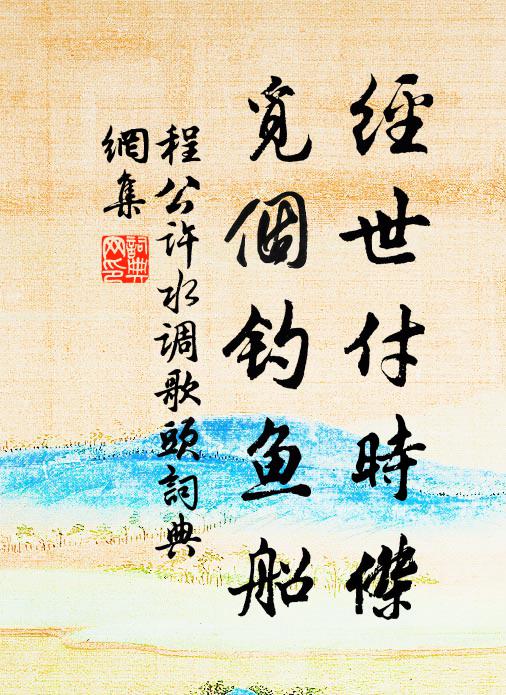 經世付時傑
覓個釣魚船
程公許水調歌頭詞典
網集
詞典
网印